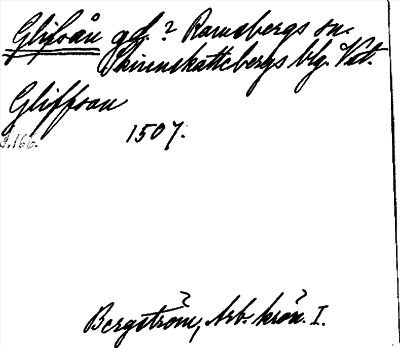 Glifsån gd.? Ramsbergs sn.
Skinnskattebergs blg. Vstm.
Gliffsan
1507.
s.166.
Bergström, Arb. krön. I.